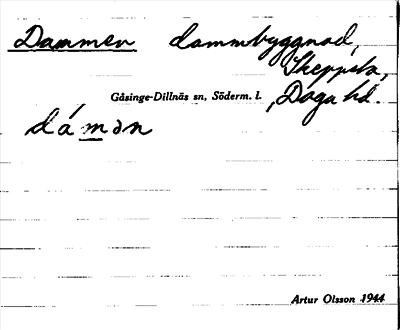 Dammen dammbyggnad,
Skeppsta,
Gåsinge-Dillnäs sn, Söderm. l. , Daga hd.
dámən
Artur Olsson 1944